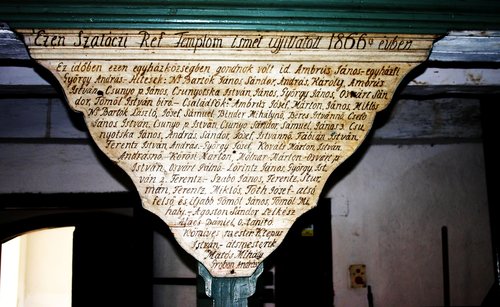 Ezen Szalóczi Ref Templom Ismét újjíttatott 1866ᵇ évben
Ez időben ezen egyházközségben gondnok volt id. Ambrus János-egyházfi
György András- Hívek: Nˢ Bartók János, Sándor, András, Károly, Ambrus
István, Csunyo p János, Csunyotska János, György János, Osvárt Sán
dor, Tömöl István bíró - Családfők: Ambrus Jósef, Márton, János, Miklós
Nˢ Bartók László, Jósef, Sámuel, Binder Mihályné, Beres Istvánné, Csebó
János, István, Csunyo p. István, Csunyo Sándor, Sámuel, János 3 Csu
nyotska János, András, Sándor, Jósef, Istvánné, Fábián István,
Ferentz István András-György Jósef, Kováts Márton István
Andrásné-Körösi Márton, Molnár Márton-Osvárt p
István, Osvárt Pálné-Lörintz János, György Ist
ván 2, Ferentz- Szabó János, Ferentz, Stur
mán, Ferentz, Miklós, Tóth Jósef-alsó
felső és ifjabb Tömöl János, Tömöl Mi
hály- Ágoston Sándor Lelkész
Dániel O. tanító
Kőmives mester Klepus
István- átsmesterek
Matós Mihály
András